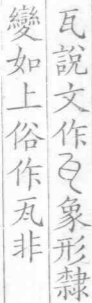 瓦說文作象形隸
變如上俗作㼚非